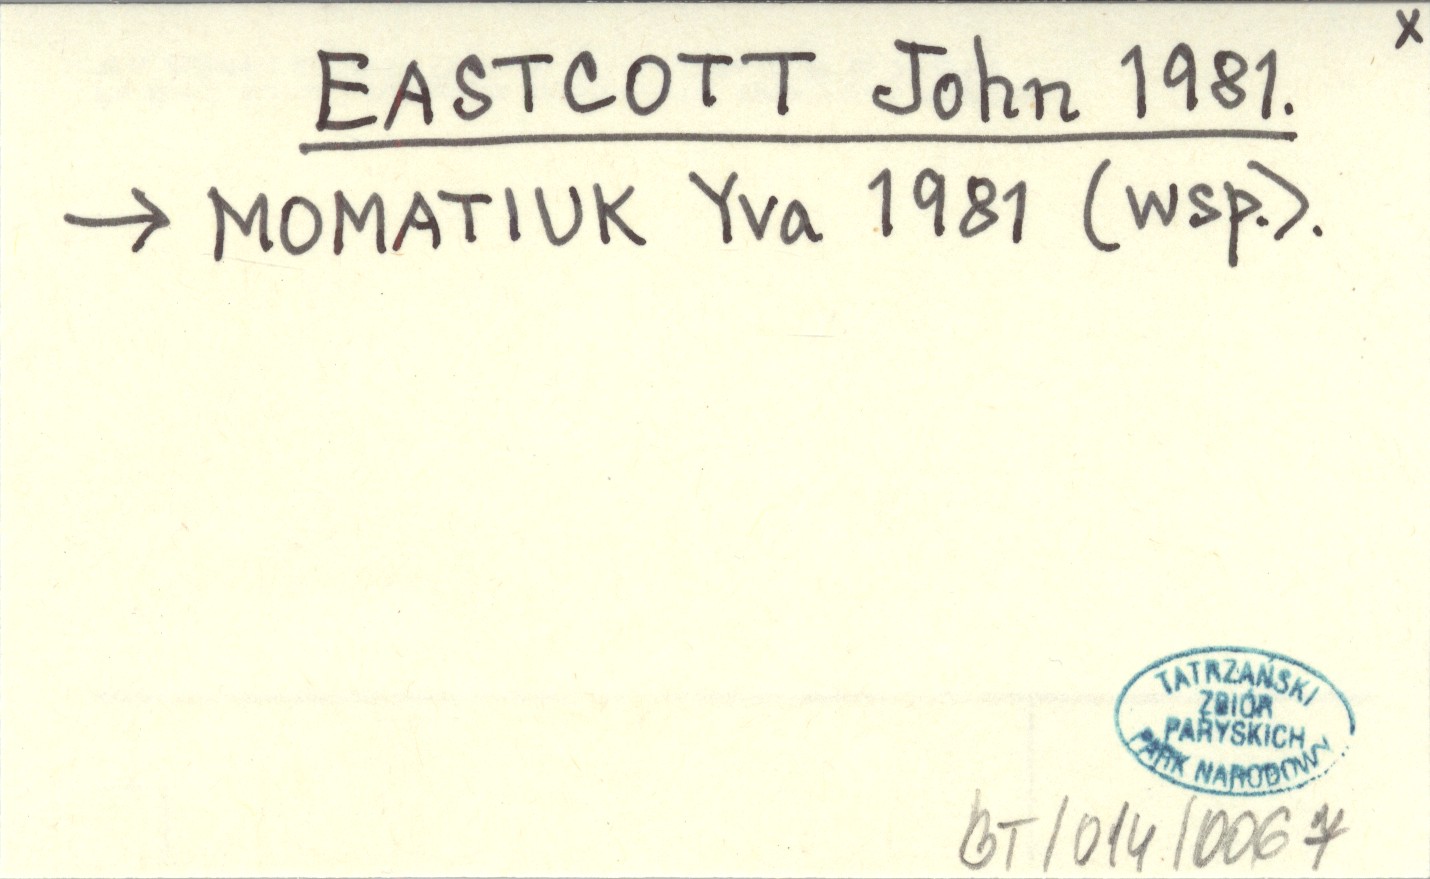 x
EASTCOTT John 1981.
→ MOMATIUK Yva 1981 (wsp.).
TATRZAŃSKI
ZBIÓR
PARYSKICH
PARK NARODOWY
BT/014/0067